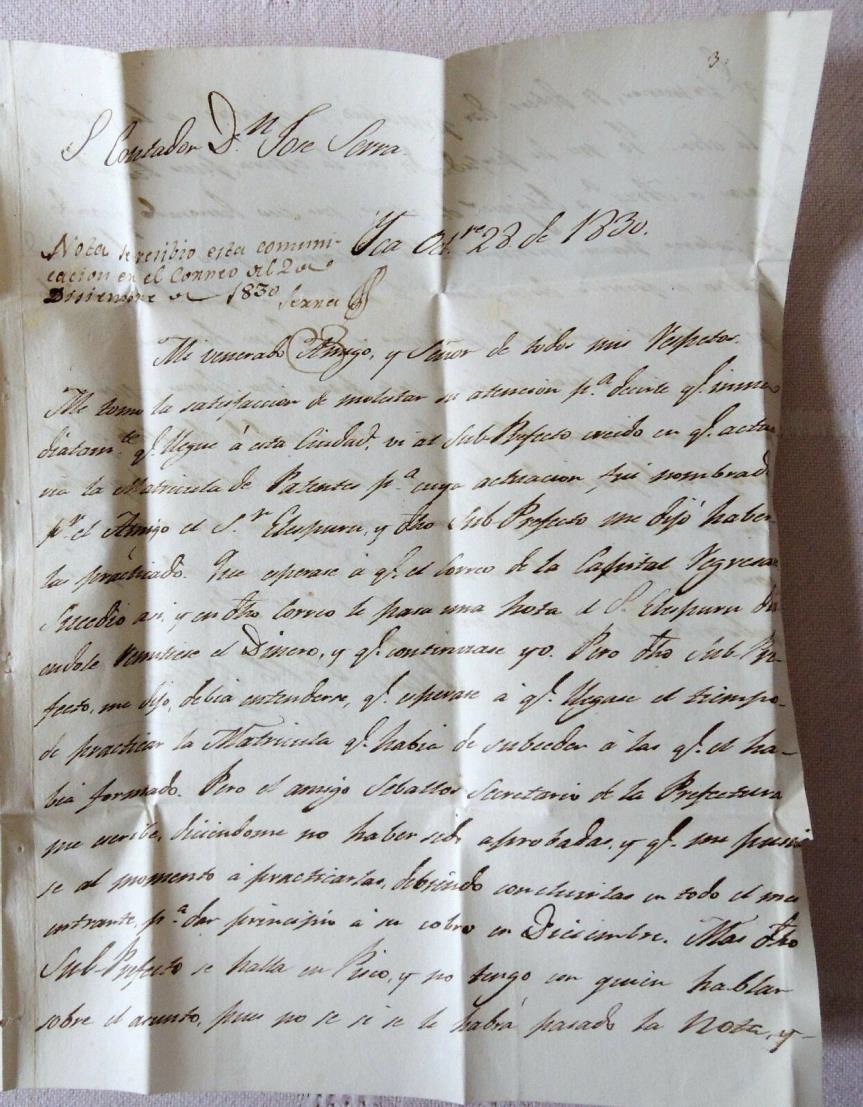 3
S. Contador D.n Jose Serra.
Yca Oct.re 28 de 1830.
Nota se recibio esta comuni-
cacion en el Correo del 2 de
Diciembre de 1830 Serra
Mi venerado Amigo, y Señor de todos mis Respetos.
Me tomo la satisfaccion de molestar su atención p.a decirle q.e inme
diatam.te q.e llegue á esta Ciudad, vi al Sub-Prefecto creido en q.e actua
va la Matricula de Patentes p.a cuya actuacion, fui nombrad
p.r el Amigo el S.r Elespuru, y dho Sub Prefecto me dijó haber
las practicado. Que esperase á q.e el Correo de la Capital Regresa
Sucedio asi, y en dho Correo le pasa una nota el S.r Elespuru
endole remitiese el Dinero, y q.e continuase yo. Pero dho Sub Pre-
fecto, me dijo, debia entenderse, q.e esperase á q.e llegase el tiempo-
de practicar la Matricula q.e habia de subceder á las q.e el ha-
bia formado. Pero el amigo Seballos Secretario de la Prefectura
me escribe, diciendome no haber sido aprobadas, y q.e me pusie
se al momento á practicarlas, debiendo concluirlas en todo el mes
entrante, p.a dar principio á su cobro en Diciembre. Mas dho
Sub-Prefecto se halla en Pisco, y no tengo con quien hablar
sobre el asunto, pues no se si se le habrá pasado la Nota, y-